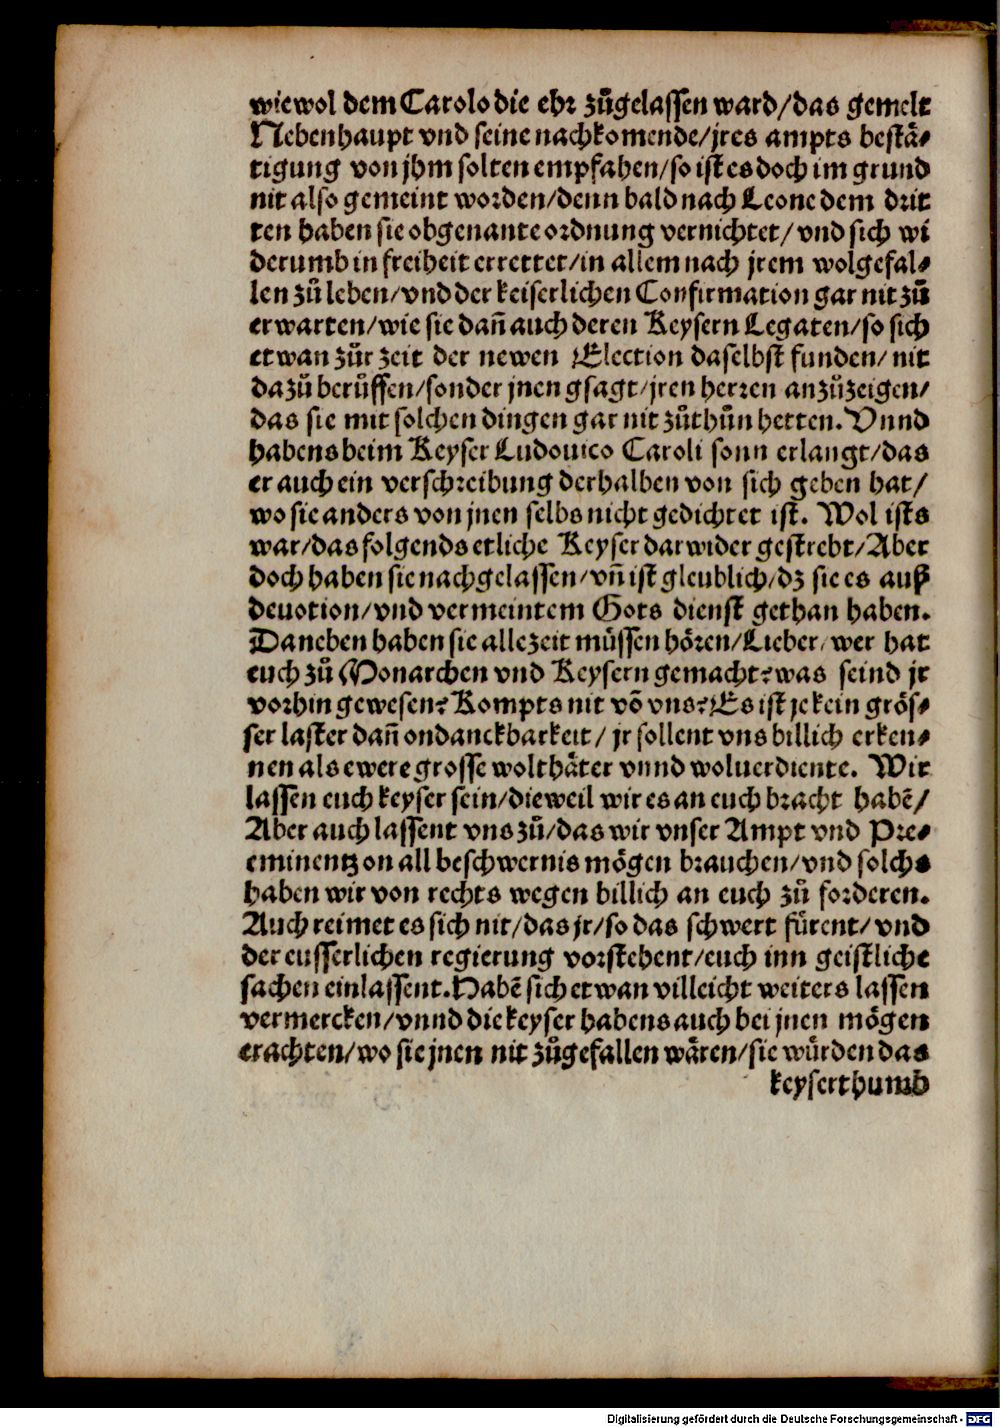 wiewol dem Carolo die ehr zůgelassen ward/das gemelt
Nebenhaupt vnd seine nachkomende/jres ampts bestä⸗
tigung von jhm solten empfahen/so ist es doch im grund
nit also gemeint worden/denn bald nach Leone dem drit
ten haben sie obgenante ordnung vernichtet/ vnd sich wi
derumb in freiheit errettet/in allem nach jrem wolgefal⸗
len zů leben/vnd der keiserlichen Confirmation gar nit zů
erwarten/wie sie dañ auch deren Keysern Legaten/so sich
etwan zůr zeit der newen Election daselbst funden/ nit
dazů berůffen/sonder jnen gsagt/jren herren anzůzeigen/
das sie mit solchen dingen gar nit zůthůn hetten. Vnnd
habens beim Keyser Ludouico Caroli sonn erlangt/das
er auch ein verschreibung derhalben von sich geben hat/
wo sie anders von jnen selbs nicht gedichtet ist. Wol ists
war/das folgends etliche Keyser darwider gestrebt/Aber
doch haben sie nachgelassen/vñ ist gleublich/dz sie es auß
deuotion/vnd vermeintem Gots dienst gethan haben.
Daneben haben sie allezeit müssen hören/Lieber/wer hat
euch zů Monarchen vnd Keysern gemacht?was seind jr
vorhin gewesen?Kompts nit võ vns?Es ist je kein grös⸗
ser laster dañ ondanckbarkeit/ jr sollent vns billich erken⸗
nen als ewere grosse wolthäter vnnd woluerdiente. Wir
lassen euch keyser sein/dieweil wir es an euch bracht habē/
Aber auch lassent vns zů/das wir vnser Ampt vnd Pre⸗
eminentz on all beschwernis mögen brauchen/vnd solchs
haben wir von rechts wegen billich an euch zů forderen.
Auch reimet es sich nit/das jr/so das schwert fürent/ vnd
der eusserlichen regierung vorstehent/euch inn geistliche
sachen einlassent.Habē sich etwan villeicht weiters lassen
vermercken/vnnd die keyser habens auch bei jnen mögen
erachten/wo sie jnen nit zůgefallen wären/sie würden das
keyserthumb
Digitalisierung gefördert durch die Deutsche Forschungsgemeinschaft - DFG